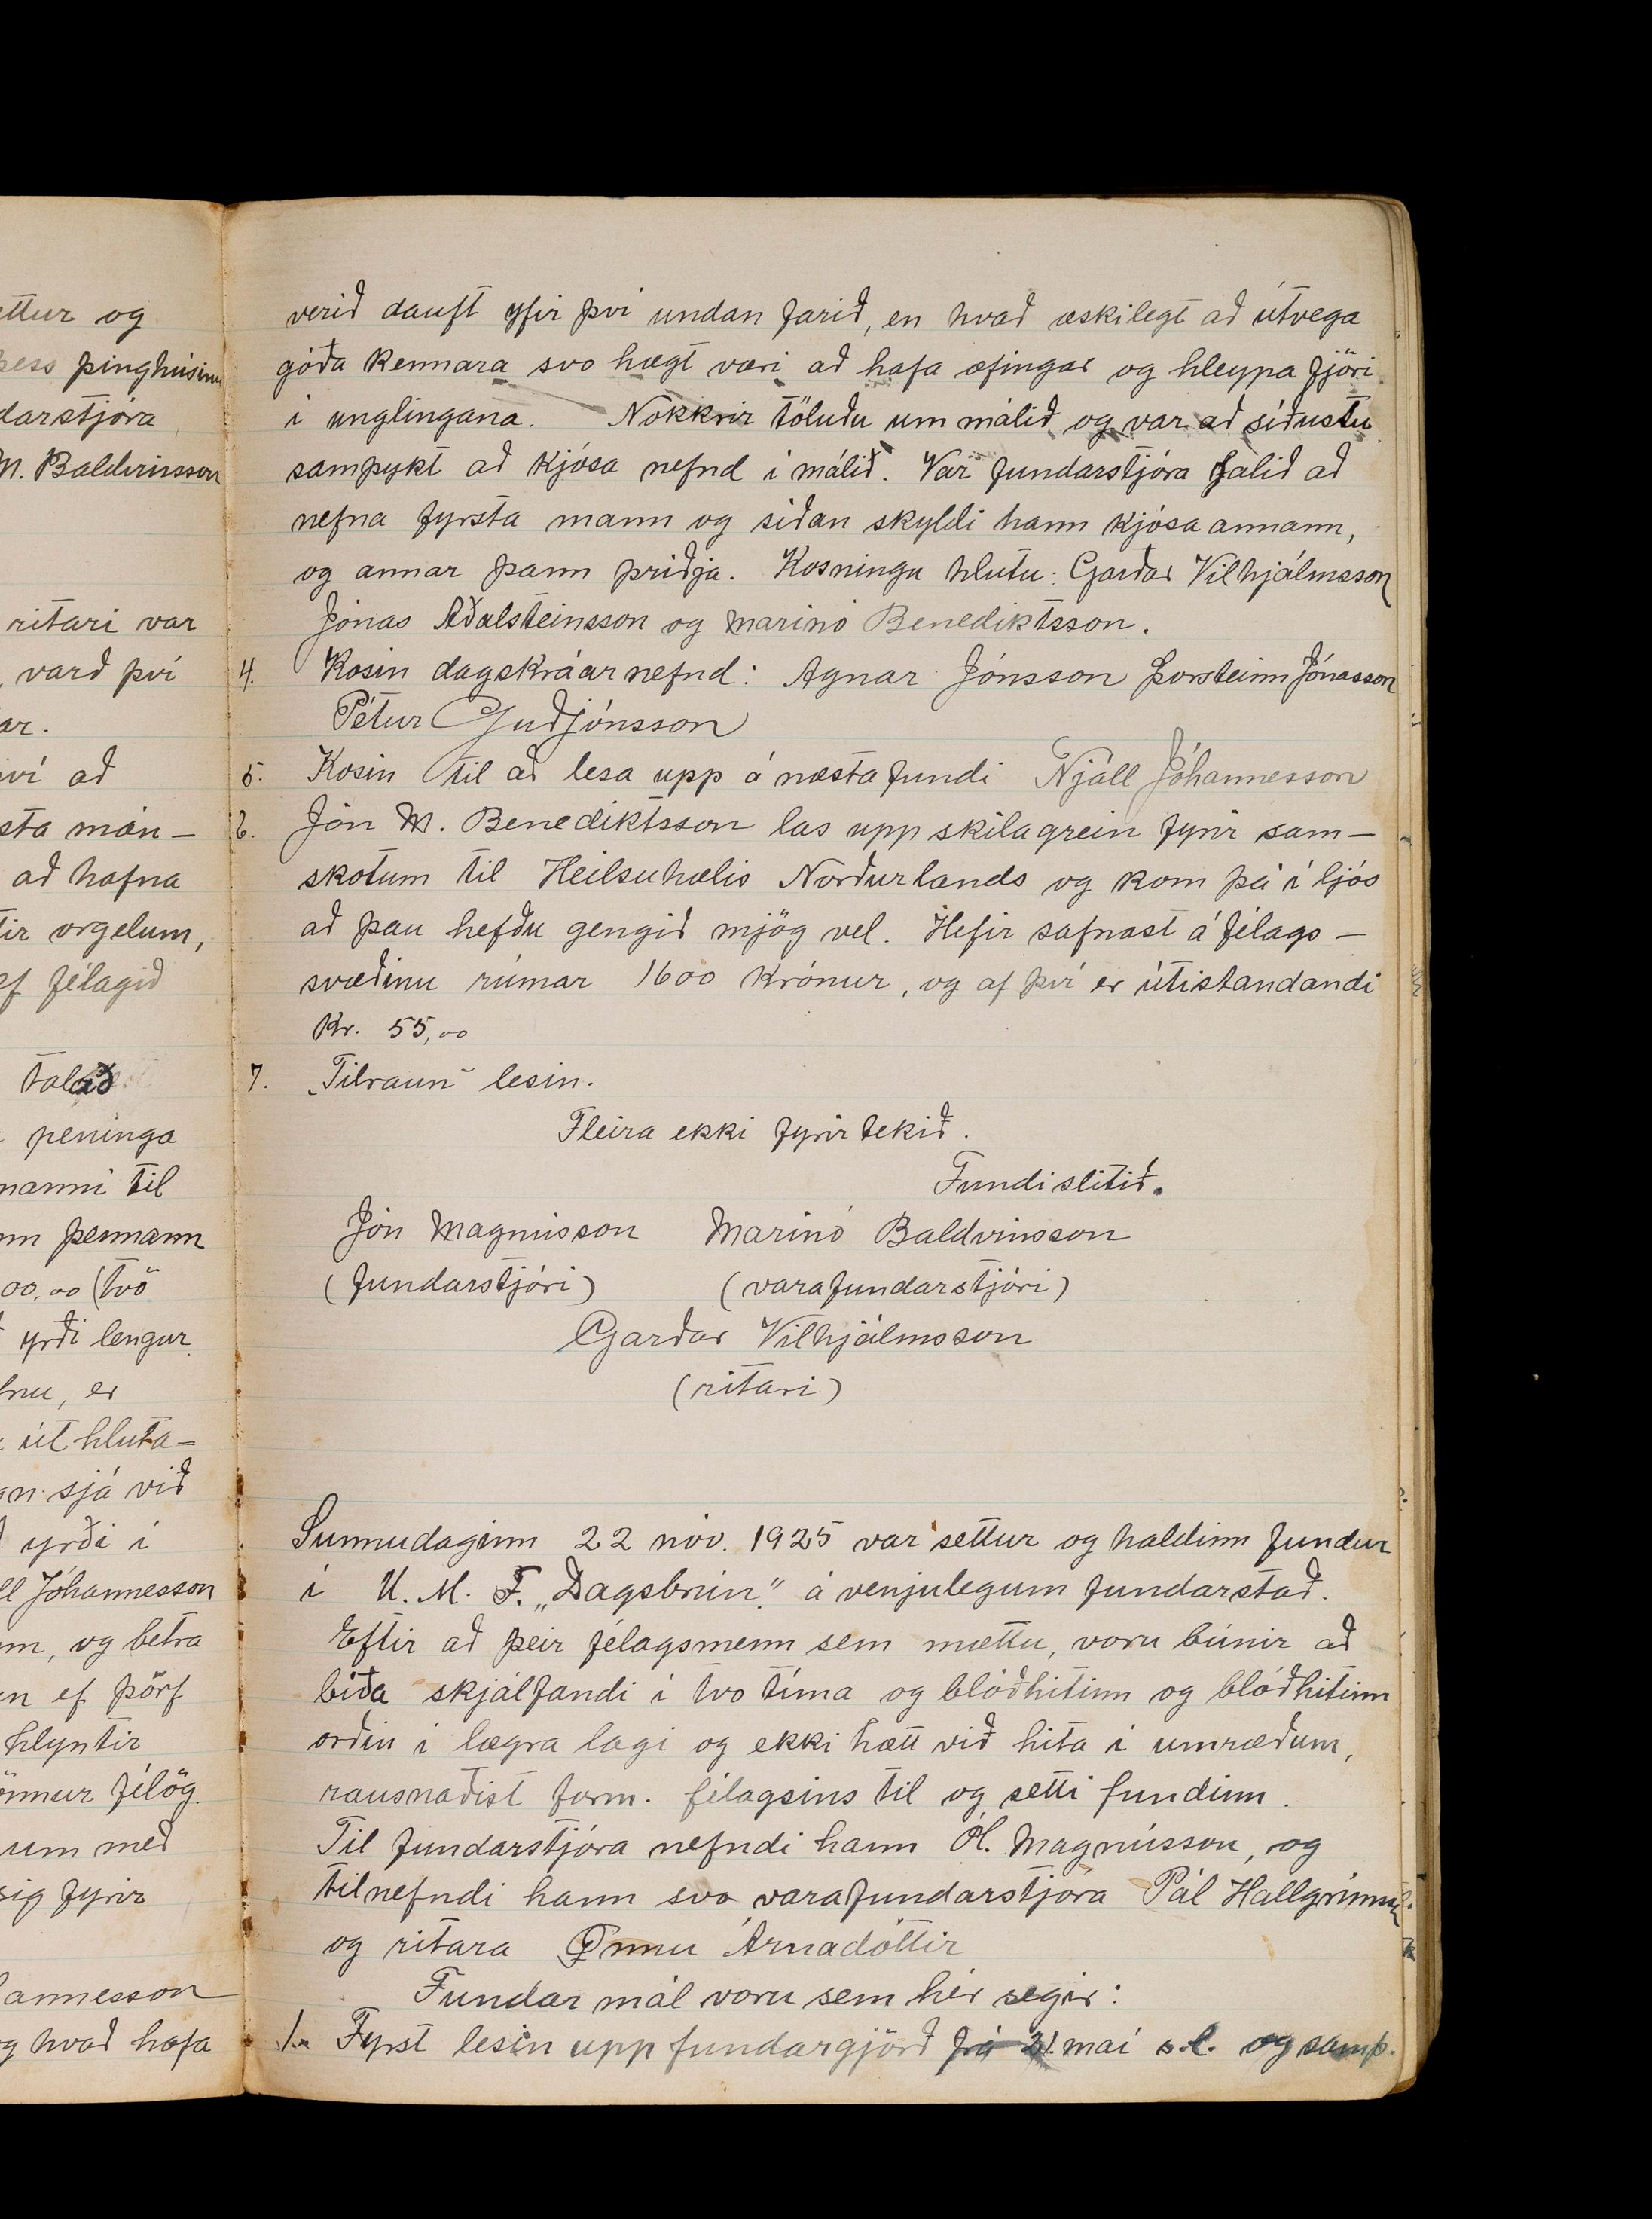 ettur og
þess þinghúsinu
darstjóra
M. Baldvinsson
ritari var
, varð því
ar.
ví að
sta mán-
að hafna
tir orgelum,
ef félagið
talað
peninga
manni til
nn þennann
00,00 (tvö
yrði lengur
er
út hluta-
sjá við
yrði í
ll Jóhannesson
m, og betra
n ef þörf
hlyntir
önnur félög.
um með
sig fyrir
annesson
g hvað hafa
verið dauft yfir því undan farið, en hvað æskilegt að útvega
góða kennara svo hægt væri að hafa æfingar og hleypa fjöri
í unglingana. Nokkrir töluðu um málið og var að síðustu
samþykt að kjósa nefnd í málið. Var fundarstjóra falið að
nefna fyrsta mann og síðan skyldi hann kjósa annann,
og annar þann þriðja. Kosningu hlutu: Garðar Vilhjálmsson
Jónas Aðalsteinsson og Marinó Benediktsson.
4. Kosin dagskráarnefnd: Agnar Jónsson Þorsteinn Jónasson
Pétur Guðjónsson
5. Kosin til að lesa upp á næsta fundi Njáll Jóhannesson
6. Jón M. Benediktsson las upp skilagrein fyrir sam-
skotum til Heilsuhælis Norðurlands og kom þá í ljós
að þau hefðu gengið mjög vel. Hefir safnast á félags-
svæðinu rúmar 1600 krónur, og af því er útistandandi
Kr. 55,00
7. „Tilraun" lesin.
Fleira ekki fyrir tekið.
Fundi slitið.
Jón Magnússon Marinó Baldvinsson
(fundarstjóri) (varafundarstjóri)
Garðar Vilhjálmsson
(ritari)
Sunnudaginn 22 nóv. 1925 var settur og haldinn fundur
í U. M. F. „Dagsbrún." á venjulegum fundarstað.
Eftir að þeir félagsmenn sem mættu, voru búnir að
bíða skjálfandi í tvo tíma og blóðhitinn og blóðhitinn
orðin í lægra lagi og ekki hætt við hita í umræðum,
rausnaðist form. félagsins til og setti fundinn.
Til fundarstjóra nefndi hann Ól. Magnússon, og
tilnefndi hann svo varafundarstjóra Pál Hallgrímss.
og ritara Önnu Árnadóttir
Fundar mál voru sem hér segir:
1. Fyrst lesin upp fundargjörð frá 21. maí s.l. og samþ.